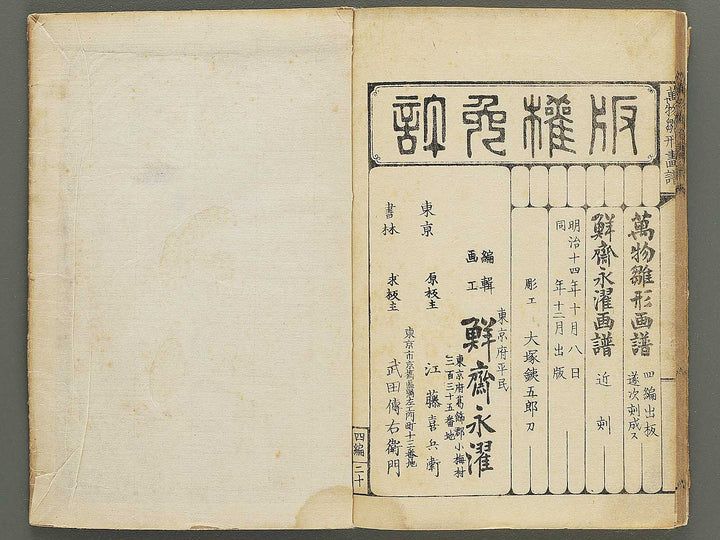 版權免許
萬物雛形画譜
四編出板
逐次刻成ス
鮮齋永濯画譜
近刻
明治十四年十月八日
同年十二月出版
彫工 大塚銕五郎刀
東京府平民
編輯
画工
鮮齋永濯
東京府葛餝郡小梅村
三百三十五番地
東京
原板主 江藤喜兵衛
書林
東京市京橋區
町十三番地
求板主 武田傳右衛門
萬物雛形畫譜
四編
二十